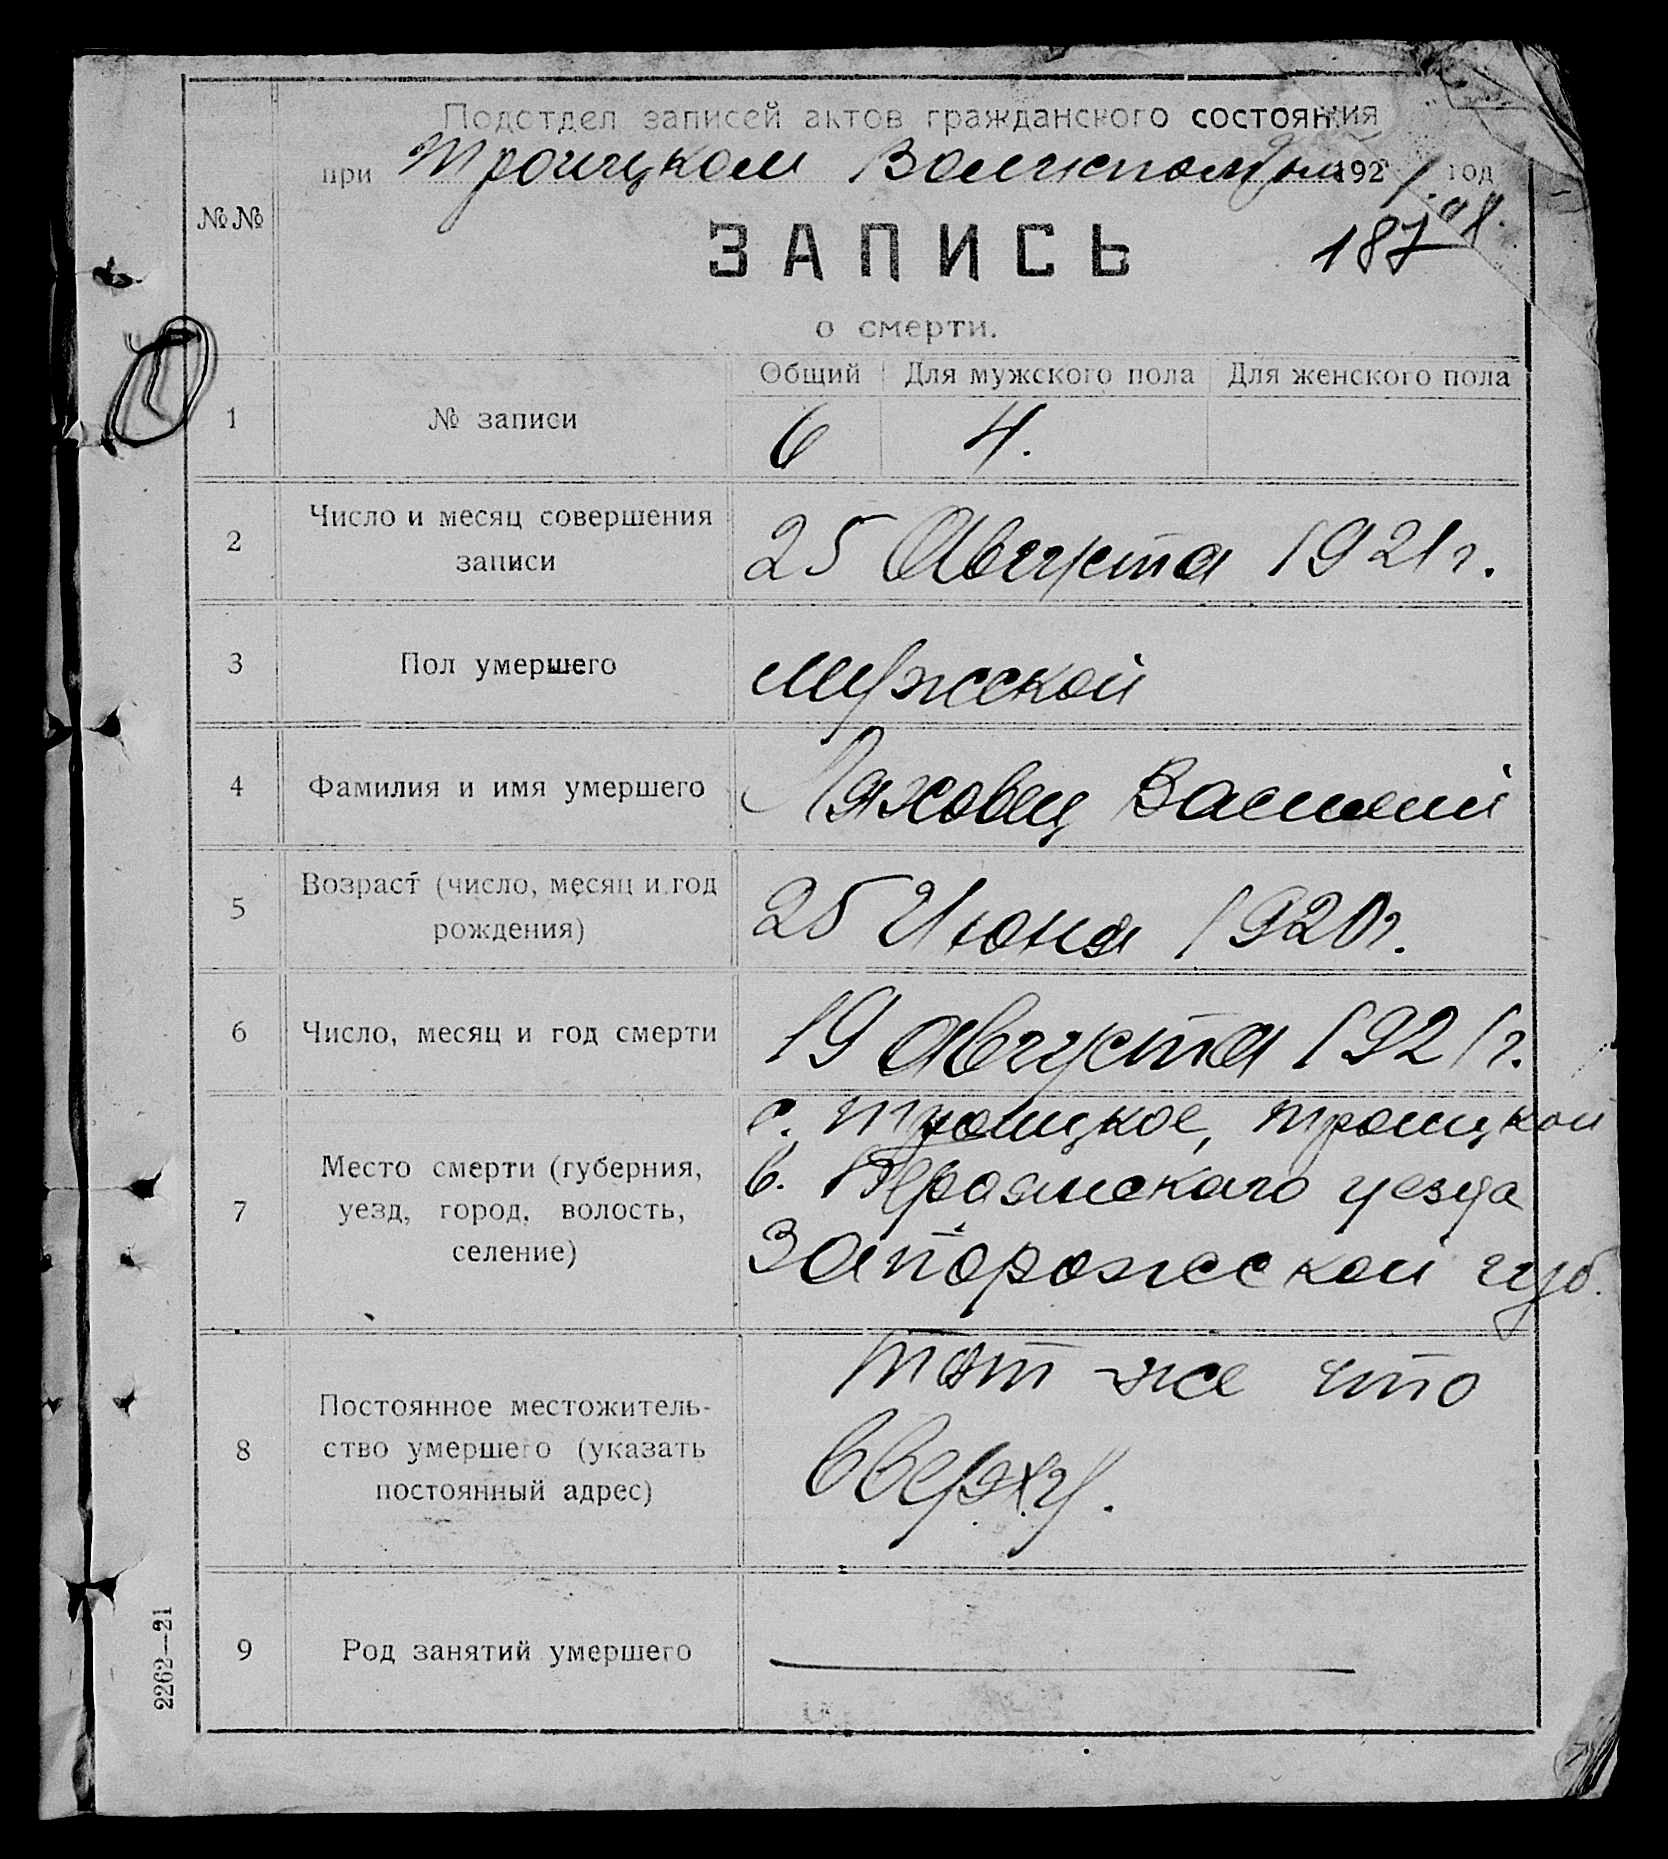 Подотдел записей актов гражданского состояния
при Троицком Волисполкоме 1921 год
№№
187
ЗАПИСЬ
о смерти.
Общий Для мужского пола Для женского пола
1 № записи 6 4.
2 Число и месяц совершения
записи 25 Августа 1921 г.
3 Пол умершего мужской
4 Фамилия и имя умершего Ляховец Василий
5 Возраст (число, месяц и год
рождения) 25 Июня 1920 г.
6 Число, месяц и год смерти 19 августа 1921 г.
7 Место смерти (губерния,
уезд, город, волость,
селение)
с. Троицкое, Троицкой
в. Бердянскаго уезда
Запорожской губ.
8 Постоянное местожитель-
ство умершего (указать
постоянный адрес)
тот же что
вверху.
9 Род занятий умершего
2262—21